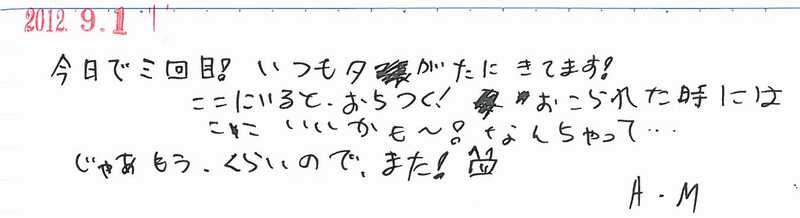 2012.9.11
今日で三回目! いつも夕がたにきてます!
ここにいると、おちつく! おこられた時には
ここ いいかも〜! なんちゃって…
じゃあもう、くらいので、また!
A.M